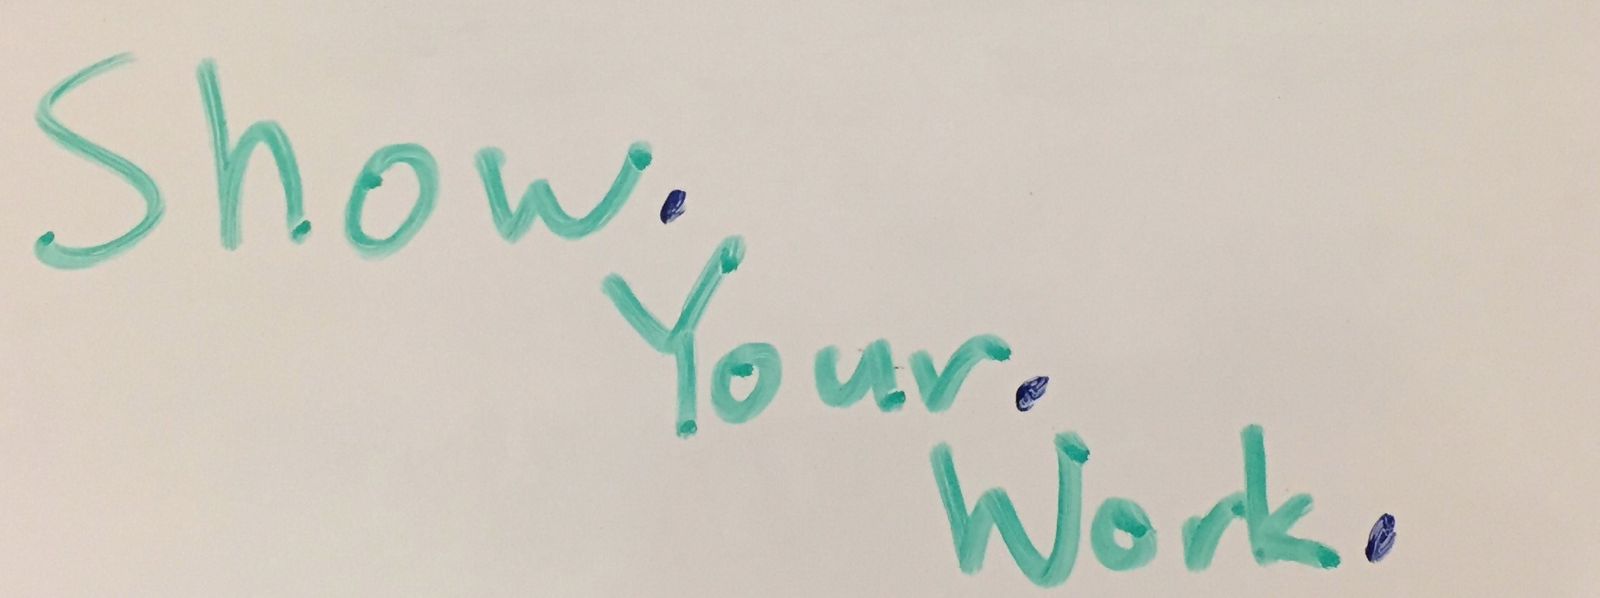 Show.
Your.
Work.